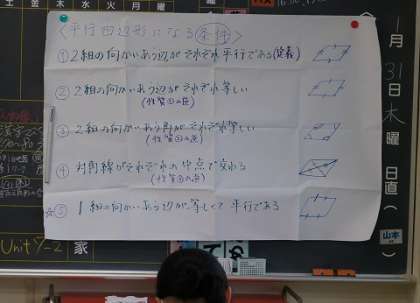 金 土 水 火 月
<平行四辺形になる条件>
① 2組の向かいあう辺がそれぞれ平行である(定義)
② 2組の向かいあう辺がそれぞれ等しい
(性質①の逆)
③ 2組の向かいあう角がそれぞれ等しい
(性質②の逆)
④ 対角線がそれぞれの中点で交わる
(性質③の逆)
⑤ 1組の向かいあう辺が等しくて平行である
1月31日木曜日直
山本
Unit 7-2
家
で